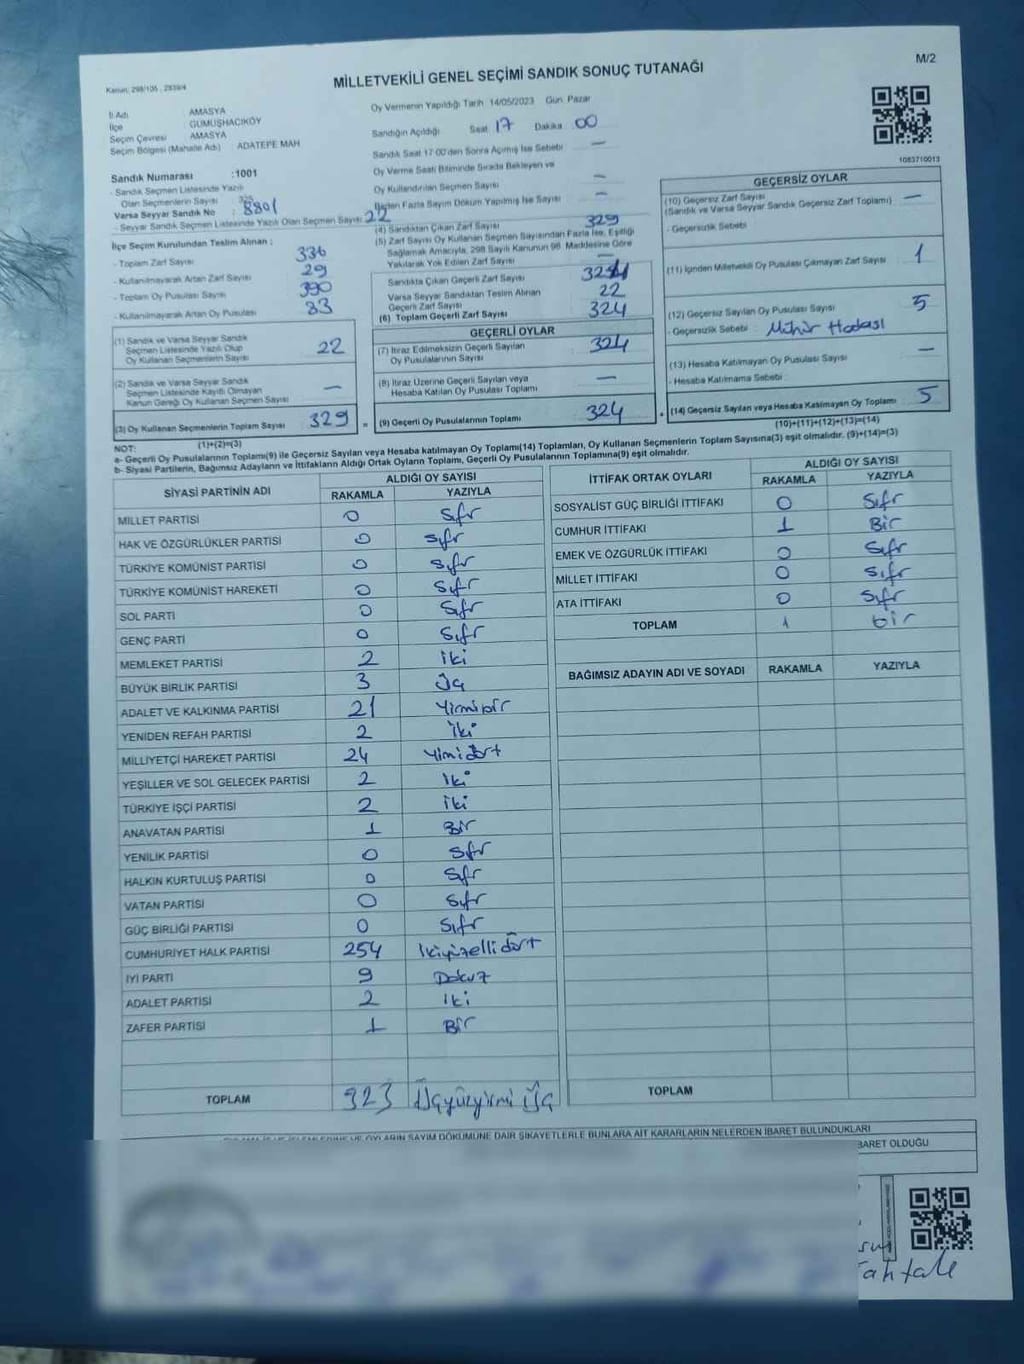 M/2
Kanun: 298/105 , 2839/4
MİLLETVEKİLİ GENEL SEÇİMİ SANDIK SONUÇ TUTANAĞI
İl Adı AMASYA
İlçe GÜMÜŞHACIKÖY
Seçim Çevresi AMASYA
Seçim Bölgesi (Mahalle Adı) ADATEPE MAH
Sandık Numarası :1001
- Sandık Seçmen Listesinde Yazılı
Olan Seçmenlerin Sayısı
Varsa Seyyar Sandık No : 8801
- Seyyar Sandık Seçmen Listesinde Yazılı Olan Seçmen Sayısı 22
İlçe Seçim Kurulundan Teslim Alınan ;
- Toplam Zarf Sayısı 336
- Kullanılmayarak Artan Zarf Sayısı 29
- Toplam Oy Pusulası Sayısı 390
- Kullanılmayarak Artan Oy Pusulası 83
(1) Sandık ve Varsa Seyyar Sandık
Seçmen Listesinde Yazılı Olup
Oy Kullanan Seçmenlerin Sayısı 22
(2) Sandık ve Varsa Seyyar Sandık
Seçmen Listesinde Kayıtlı Olmayan
Kanun Gereği Oy Kullanan Seçmen Sayısı —
(3) Oy Kullanan Seçmenlerin Toplam Sayısı 329
(1)+(2)=(3)
Oy Vermenin Yapıldığı Tarih 14/05/2023 Gün: Pazar
Sandığın Açıldığı Saat 17 Dakika 00
Sandık Saat 17:00'den Sonra Açılmış İse Sebebi —
Oy Verme Saati Bitiminde Sırada Bekleyen ve
Oy Kullandırılan Seçmen Sayısı —
Birden Fazla Sayım Döküm Yapılmış İse Sayısı —
(4) Sandıktan Çıkan Zarf Sayısı 329
(5) Zarf Sayısı Oy Kullanan Seçmen Sayısından Fazla İse, Eşitliği
Sağlamak Amacıyla, 298 Sayılı Kanunun 98. Maddesine Göre
Yakılarak Yok Edilen Zarf Sayısı —
Sandıkta Çıkan Geçerli Zarf Sayısı
Varsa Seyyar Sandıktan Teslim Alınan
Geçerli Zarf Sayısı 22
(6) Toplam Geçerli Zarf Sayısı 324
GEÇERLİ OYLAR
(7) İtiraz Edilmeksizin Geçerli Sayılan
Oy Pusulalarının Sayısı 324
(8) İtiraz Üzerine Geçerli Sayılan veya
Hesaba Katılan Oy Pusulası Toplamı —
= (9) Geçerli Oy Pusulalarının Toplamı 324
1083710013
GEÇERSİZ OYLAR
(10) Geçersiz Zarf Sayısı
(Sandık ve Varsa Seyyar Sandık Geçersiz Zarf Toplamı) —
- Geçersizlik Sebebi
(11) İçinden Milletvekili Oy Pusulası Çıkmayan Zarf Sayısı 1
(12) Geçersiz Sayılan Oy Pusulası Sayısı 5
- Geçersizlik Sebebi Mühür Hatası
(13) Hesaba Katılmayan Oy Pusulası Sayısı —
- Hesaba Katılmama Sebebi
+ (14) Geçersiz Sayılan veya Hesaba Katılmayan Oy Toplamı 5
(10)+(11)+(12)+(13)=(14)
NOT:
a- Geçerli Oy Pusulalarının Toplamı(9) ile Geçersiz Sayılan veya Hesaba katılmayan Oy Toplamı(14) Toplamları, Oy Kullanan Seçmenlerin Toplam Sayısına(3) eşit olmalıdır. (9)+(14)=(3)
b- Siyasi Partilerin, Bağımsız Adayların ve İttifakların Aldığı Ortak Oyların Toplamı, Geçerli Oy Pusulalarının Toplamına(9) eşit olmalıdır.
SİYASİ PARTİNİN ADI ALDIĞI OY SAYISI
RAKAMLA YAZIYLA
MİLLET PARTİSİ 0 Sıfır
HAK VE ÖZGÜRLÜKLER PARTİSİ 0 Sıfır
TÜRKİYE KOMÜNİST PARTİSİ 0 Sıfır
TÜRKİYE KOMÜNİST HAREKETİ 0 Sıfır
SOL PARTİ 0 Sıfır
GENÇ PARTİ 0 Sıfır
MEMLEKET PARTİSİ 2 iki
BÜYÜK BİRLİK PARTİSİ 3 Üç
ADALET VE KALKINMA PARTİSİ 21 Yirmibir
YENİDEN REFAH PARTİSİ 2 İki
MİLLİYETÇİ HAREKET PARTİSİ 24 Yirmidört
YEŞİLLER VE SOL GELECEK PARTİSİ 2 İki
TÜRKİYE İŞÇİ PARTİSİ 2 İki
ANAVATAN PARTİSİ 1 Bir
YENİLİK PARTİSİ 0 Sıfır
HALKIN KURTULUŞ PARTİSİ 0 Sıfır
VATAN PARTİSİ 0 Sıfır
GÜÇ BİRLİĞİ PARTİSİ 0 Sıfır
CUMHURİYET HALK PARTİSİ 254 İkiyüzellidört
İYİ PARTİ 9 Dokuz
ADALET PARTİSİ 2 İki
ZAFER PARTİSİ 1 Bir
TOPLAM 323 Üçyüzyirmi Üç
İTTİFAK ORTAK OYLARI ALDIĞI OY SAYISI
RAKAMLA YAZIYLA
SOSYALİST GÜÇ BİRLİĞİ İTTİFAKI 0 Sıfır
CUMHUR İTTİFAKI 1 Bir
EMEK VE ÖZGÜRLÜK İTTİFAKI 0 Sıfır
MİLLET İTTİFAKI 0 Sıfır
ATA İTTİFAKI 0 Sıfır
TOPLAM 1 bir
BAĞIMSIZ ADAYIN ADI VE SOYADI RAKAMLA YAZIYLA
TOPLAM
VE OYLARIN SAYIM DÖKÜMÜNE DAİR ŞİKAYETLERLE BUNLARA AİT KARARLARIN NELERDEN İBARET BULUNDUKLARI
İBARET OLDUĞU